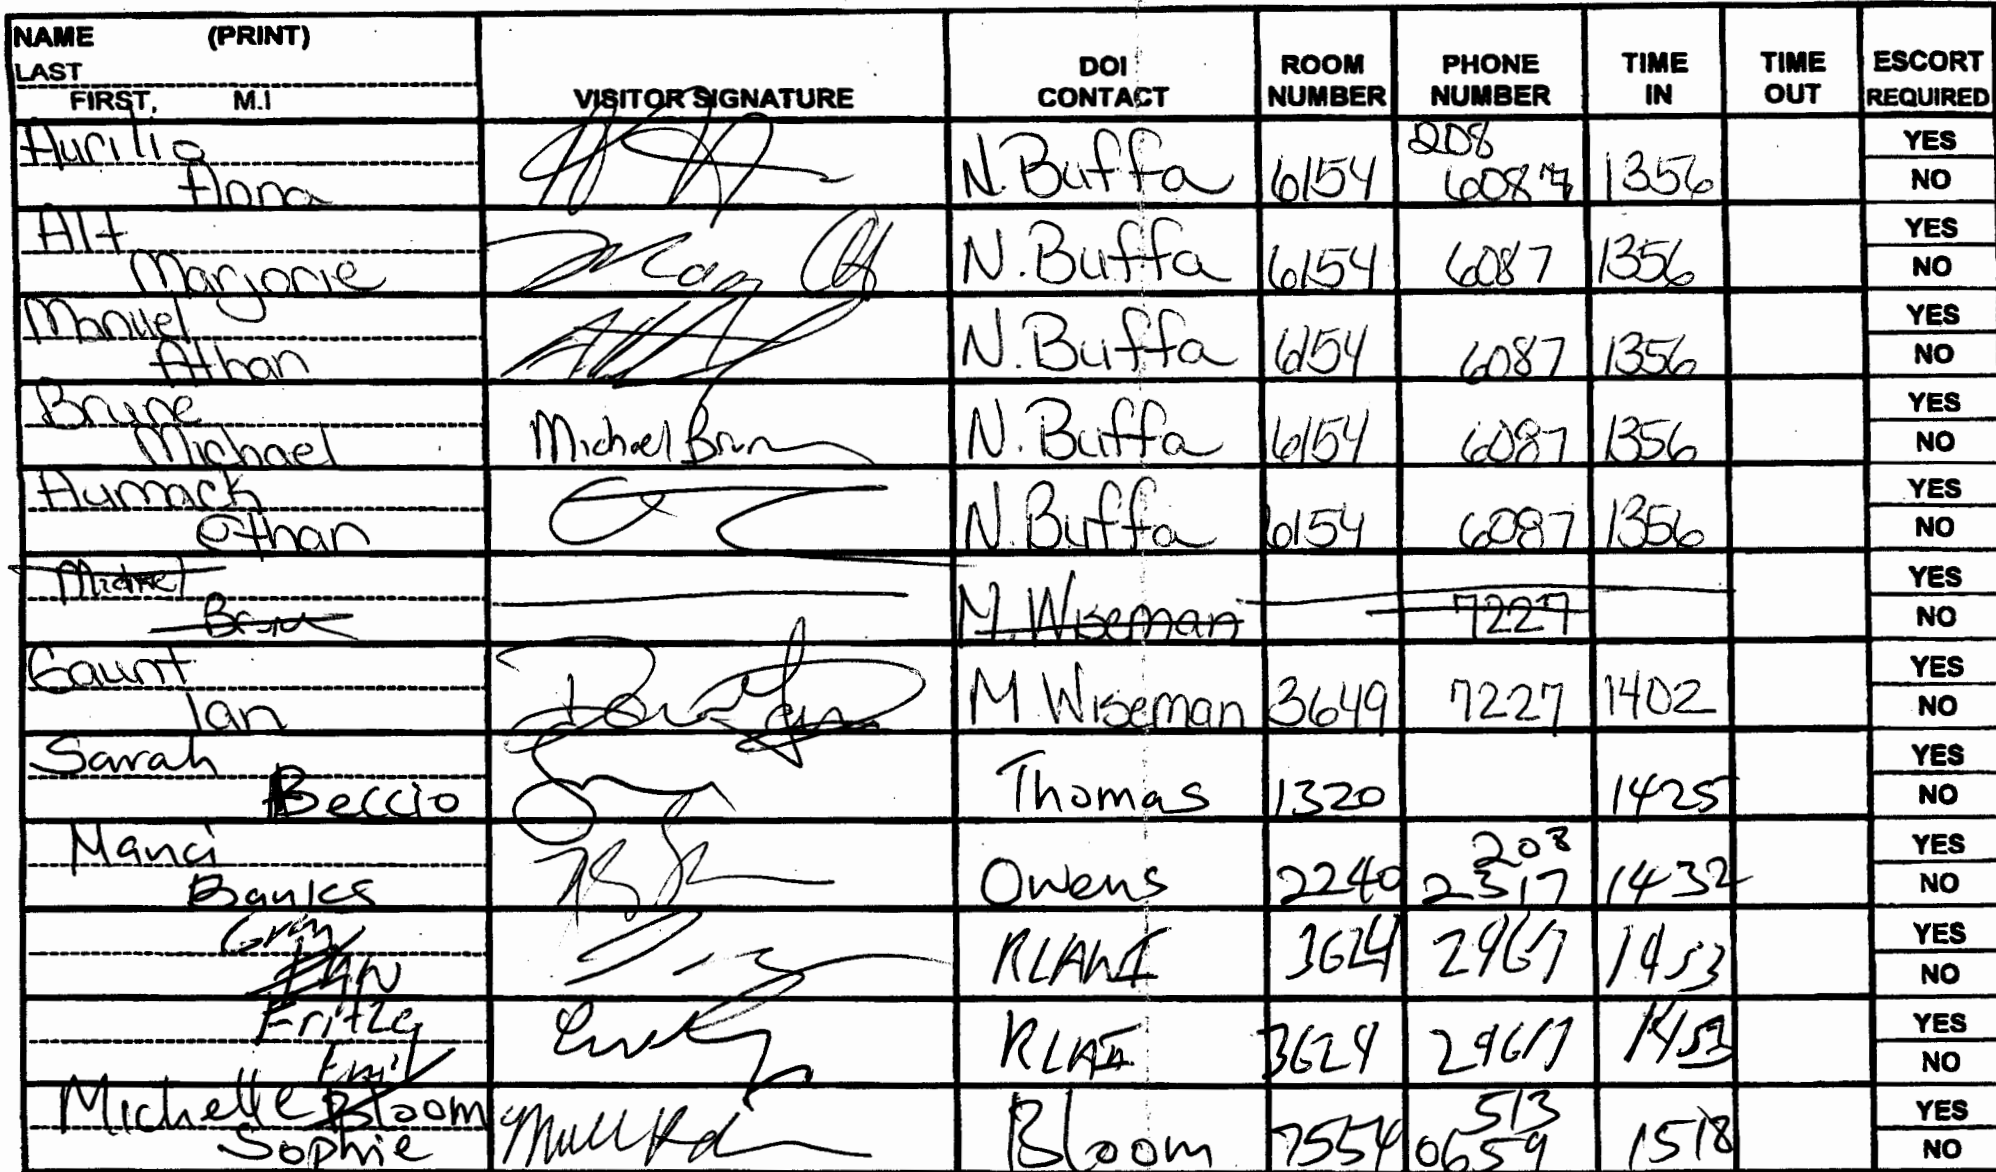 NAME (PRINT)
LAST
FIRST, M.I
VISITOR SIGNATURE
DOI CONTACT
ROOM NUMBER
PHONE NUMBER
TIME IN
TIME OUT
ESCORT REQUIRED
Aurilio
Anna N. Buffa 6154 208 6087 1356 YES NO
Alt
Marjorie N. Buffa 6154 6087 1356 YES NO
Manuel
Athan N. Buffa 6154 6087 1356 YES NO
Brune
Michael Michael Brun N. Buffa 6154 6087 1356 YES NO
Aumack
Ethan N. Buffa 6154 6087 1356 YES NO
M. Wiseman 7227 YES NO
Gaunt
Ian M Wiseman 3649 7227 1402 YES NO
Sarah
Beccio Thomas 1320 1425 YES NO
Manci
Banks Owens 2240 208 2317 1432 YES NO
3624 2967 1453 YES NO
Emil 3624 2967 1453 YES NO
Michelle Bloom
Sophie Bloom 7554 513 0659 1518 YES NO